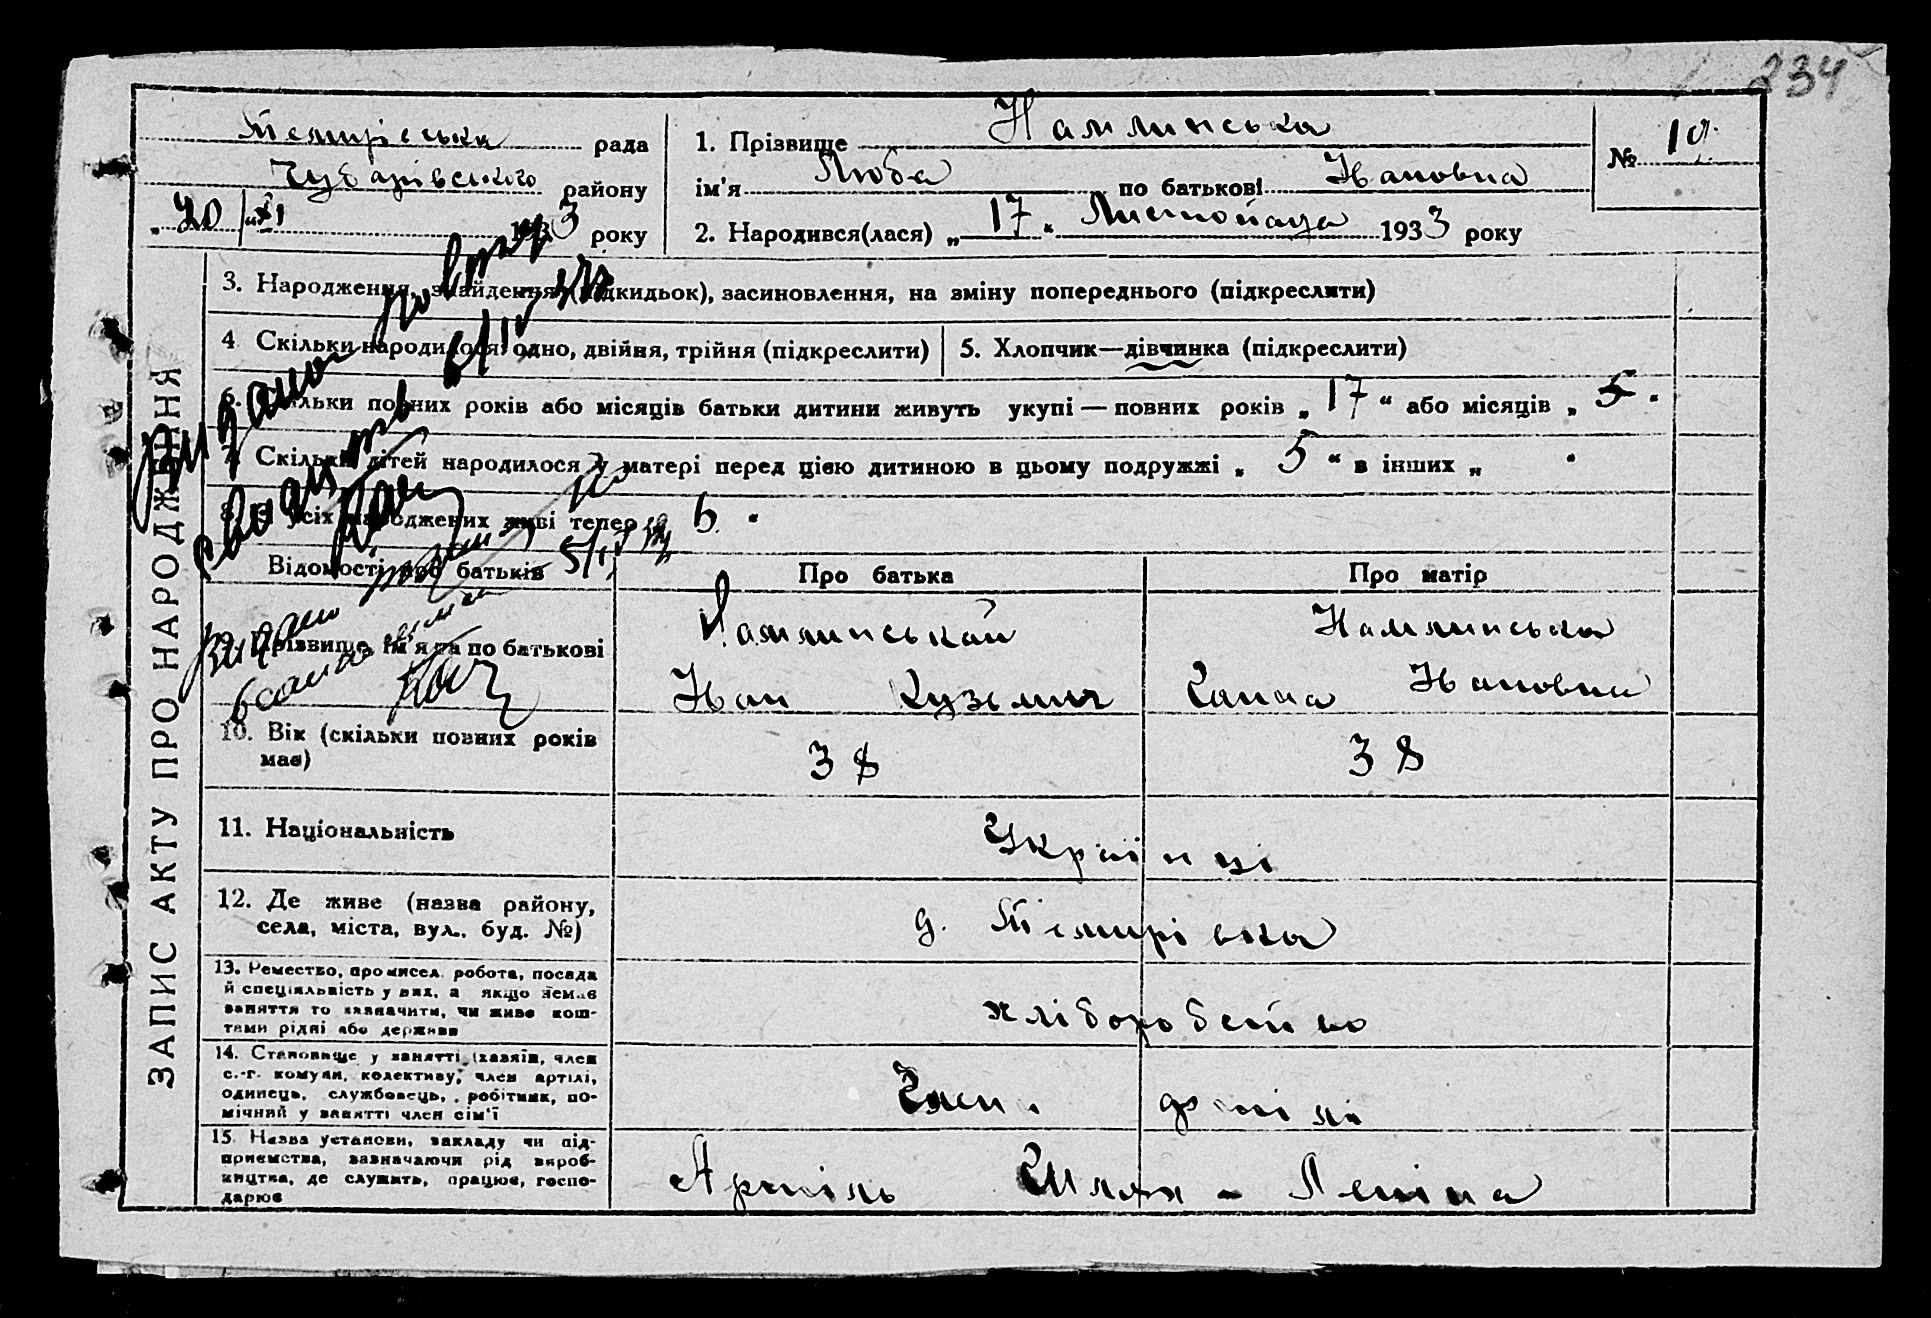 234
Темирівська рада
Чубарівського району
„20 / XI 1933 року
1. Прізвище Камлинська
ім'я Люба по батькові Івановна
№ 19
2. Народився(лася) „17“ Листопада 1933 року
ЗАПИС АКТУ ПРО НАРОДЖЕННЯ
3. Народження, знайдення (підкидьок), засиновлення, на зміну попереднього (підкреслити)
4 Скільки народилося: одно, двійня, трійня (підкреслити)
5. Хлопчик—дівчинка (підкреслити)
6. Скільки повних років або місяців батьки дитини живуть укупі — повних років „17“ або місяців „5“
7. Скільки дітей народилося у матері перед цією дитиною в цьому подружжі „5“ в інших „
8. З усіх народжених живі тепер 6.
Відомості про батьків
Про батька
Про матір
9. Прізвище, ім'я та по батькові
Камлинський
Іван Кузьмич
Камлинська
Ганна Івановна
10. Вік (скільки повних років має)
38
38
11. Національність
Українці
12. Де живе (назва району,
села, міста, вул., буд. №)
д. Темирівка
13. Ремество, промисел, робота, посада
й спеціяльність у них, а якщо немає
заняття то зазначити, чи живе кош-
тами рідні або держави
хліборобство
14. Становище у занятті (хазяїн, член
с.-г. комуни, колективу, член артілі,
одинець, службовець, робітник, по-
мічний у занятті член сім'ї
Член артілі
15. Назва установи, закладу чи під-
приємства, зазначаючи рід вироб-
ництва, де служить, працює, госпо-
дарює
Артіль Шлях - Леніна